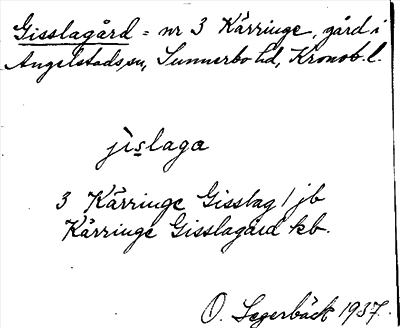 Gisslagård = nr 3 Kärringe, gård i
Angelstads sn, Sunnerbo hd, Kronob. l.
jìslaga
3 Kärringe Gisslag / jb
Kärringe Gisslagård kb.
O. Segerbäck 1937.